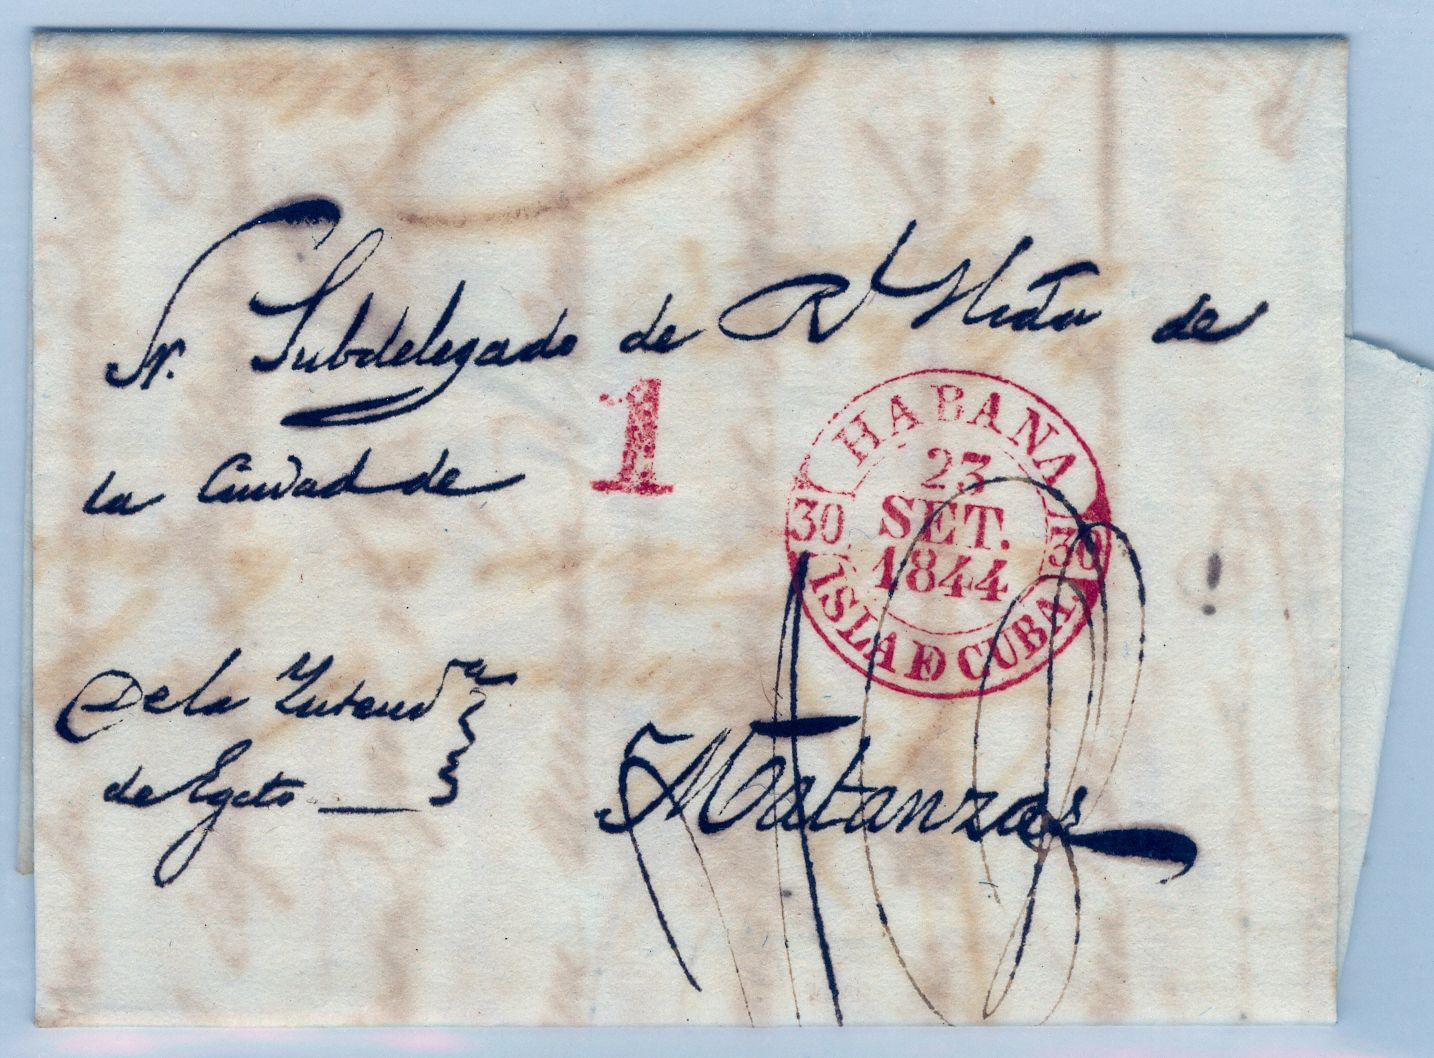 Sr. Subdelegado de Rl Hcda de
la Ciudad de
1
HABANA
23
SET.
1844
30
30
ISLA DE CUBA.
De la Intenda
de Egcto
Matanzas